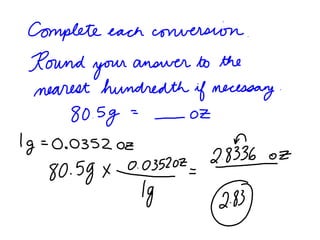 Complete each conversion.
Round your answer to the
nearest hundredth if necessary.
80.5g = ___ oz
1g = 0.0352 oz
80.5g x 0.0352oz / 1g = 2.8336 oz
2.83